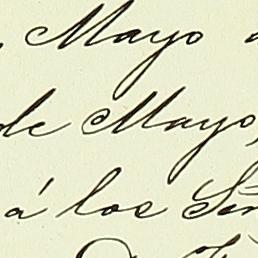 Mayo
de Mayo,
á los